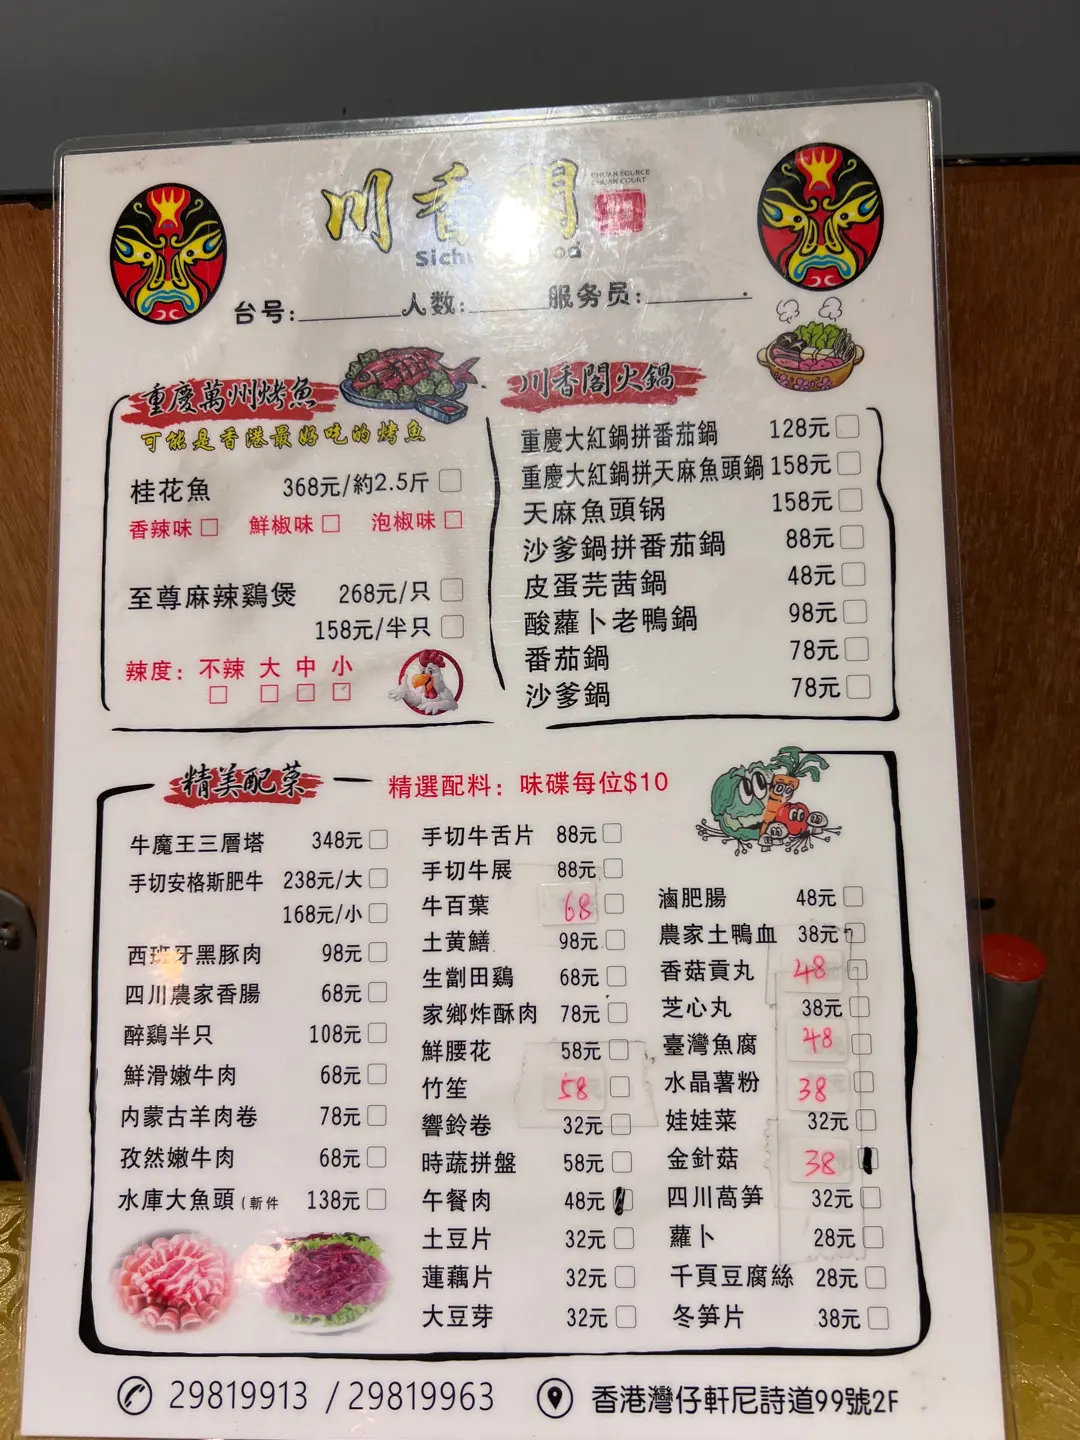 川香閣
CHUAN SOURCE
CHUAN COURT
台号: 人数: 服务员:
重慶萬州烤魚
可能是香港最好吃的烤魚
桂花魚 368元/約2.5斤
香辣味 鮮椒味 泡椒味
至尊麻辣鷄煲 268元/只
158元/半只
辣度: 不辣 大 中 小
川香閣火鍋
重慶大紅鍋拼番茄鍋 128元
重慶大紅鍋拼天麻魚頭鍋 158元
天麻魚頭锅 158元
沙爹鍋拼番茄鍋 88元
皮蛋芫茜鍋 48元
酸蘿卜老鴨鍋 98元
番茄鍋 78元
沙爹鍋 78元
精美配菜
精選配料: 味碟每位$10
牛魔王三層塔 348元
手切安格斯肥牛 238元/大
168元/小
西班牙黑豚肉 98元
四川農家香腸 68元
醉鷄半只 108元
鮮滑嫩牛肉 68元
内蒙古羊肉卷 78元
孜然嫩牛肉 68元
水庫大魚頭(斬件 138元
手切牛舌片 88元
手切牛展 88元
牛百葉 68
土黄鱔 98元
生劏田鷄 68元
家鄉炸酥肉 78元
鮮腰花 58元
竹笙 58
響鈴卷 32元
時蔬拼盤 58元
午餐肉 48元
土豆片 32元
蓮藕片 32元
大豆芽 32元
滷肥腸 48元
農家土鴨血 38元
香菇貢丸 48
芝心丸 38元
臺灣魚腐 48
水晶薯粉 38
娃娃菜 32元
金針菇 38
四川萵笋 32元
蘿卜 28元
千頁豆腐絲 28元
冬笋片 38元
29819913 / 29819963
香港灣仔軒尼詩道99號2F